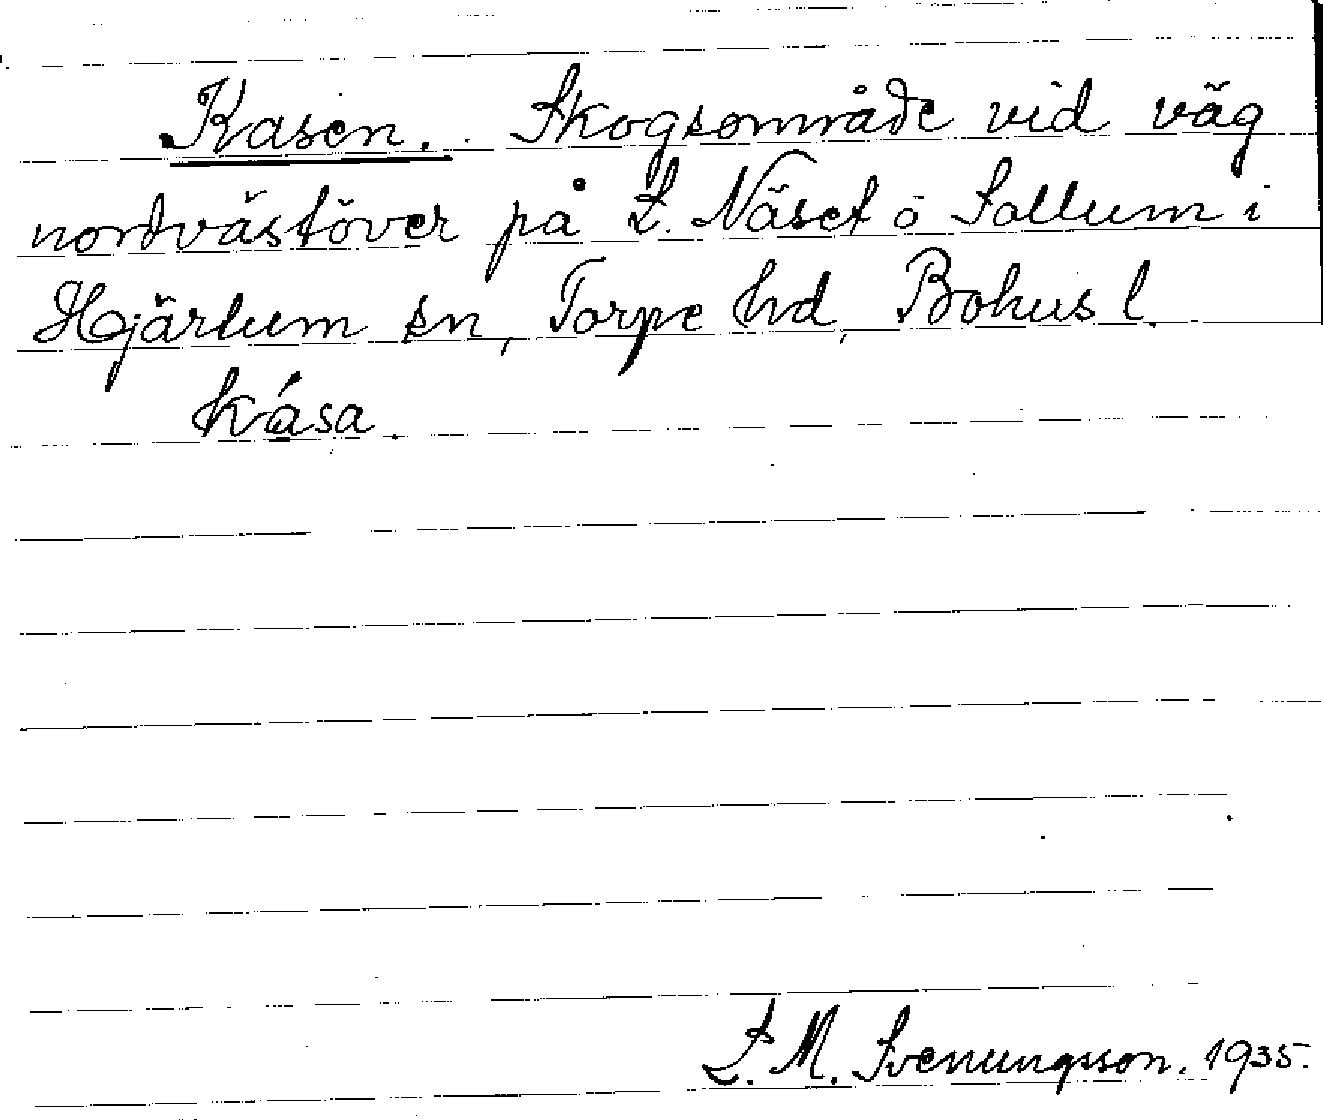 Kasen. Skogsområde vid väg
nordvästöver på L. Näset ö Sollum i
Hjärtum sn, Torpe hd, Bohus l.
kása.
L. M. Svenungsson. 1935.